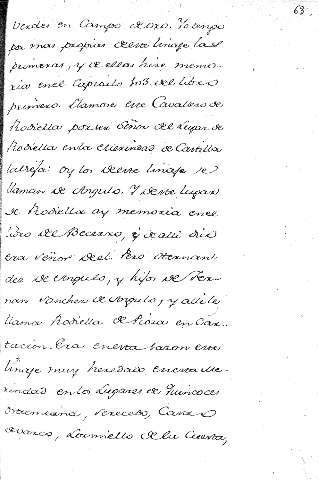 63
verdes en Campo de oro. Yo tengo
por mas propias de este linaje las
primeras, y de ellas hize memo-
ria en el Capitulo 103. del libro
primero. Llamase este Cavallero de
Rodiella por ser Señor del Lugar de
Rodiella en la Merindad de Castilla
la vieja: oy los de este linaje se
llaman de Angulo. Y de este lugar
de Rodiella ay memoria en el
libro de Becerro, y de alli diz
era Señor del Pero Hernan-
dez de Angulo, y hijos de Fer-
nan Sanchez de Angulo, y alli le
llama Rodiella de Piora en
tacion. Era en esta sazon este
linaje muy heredado en esta Me-
rindad en los Lugares de Quincoces
Berecedo,
Lormiello de la Cuesta,